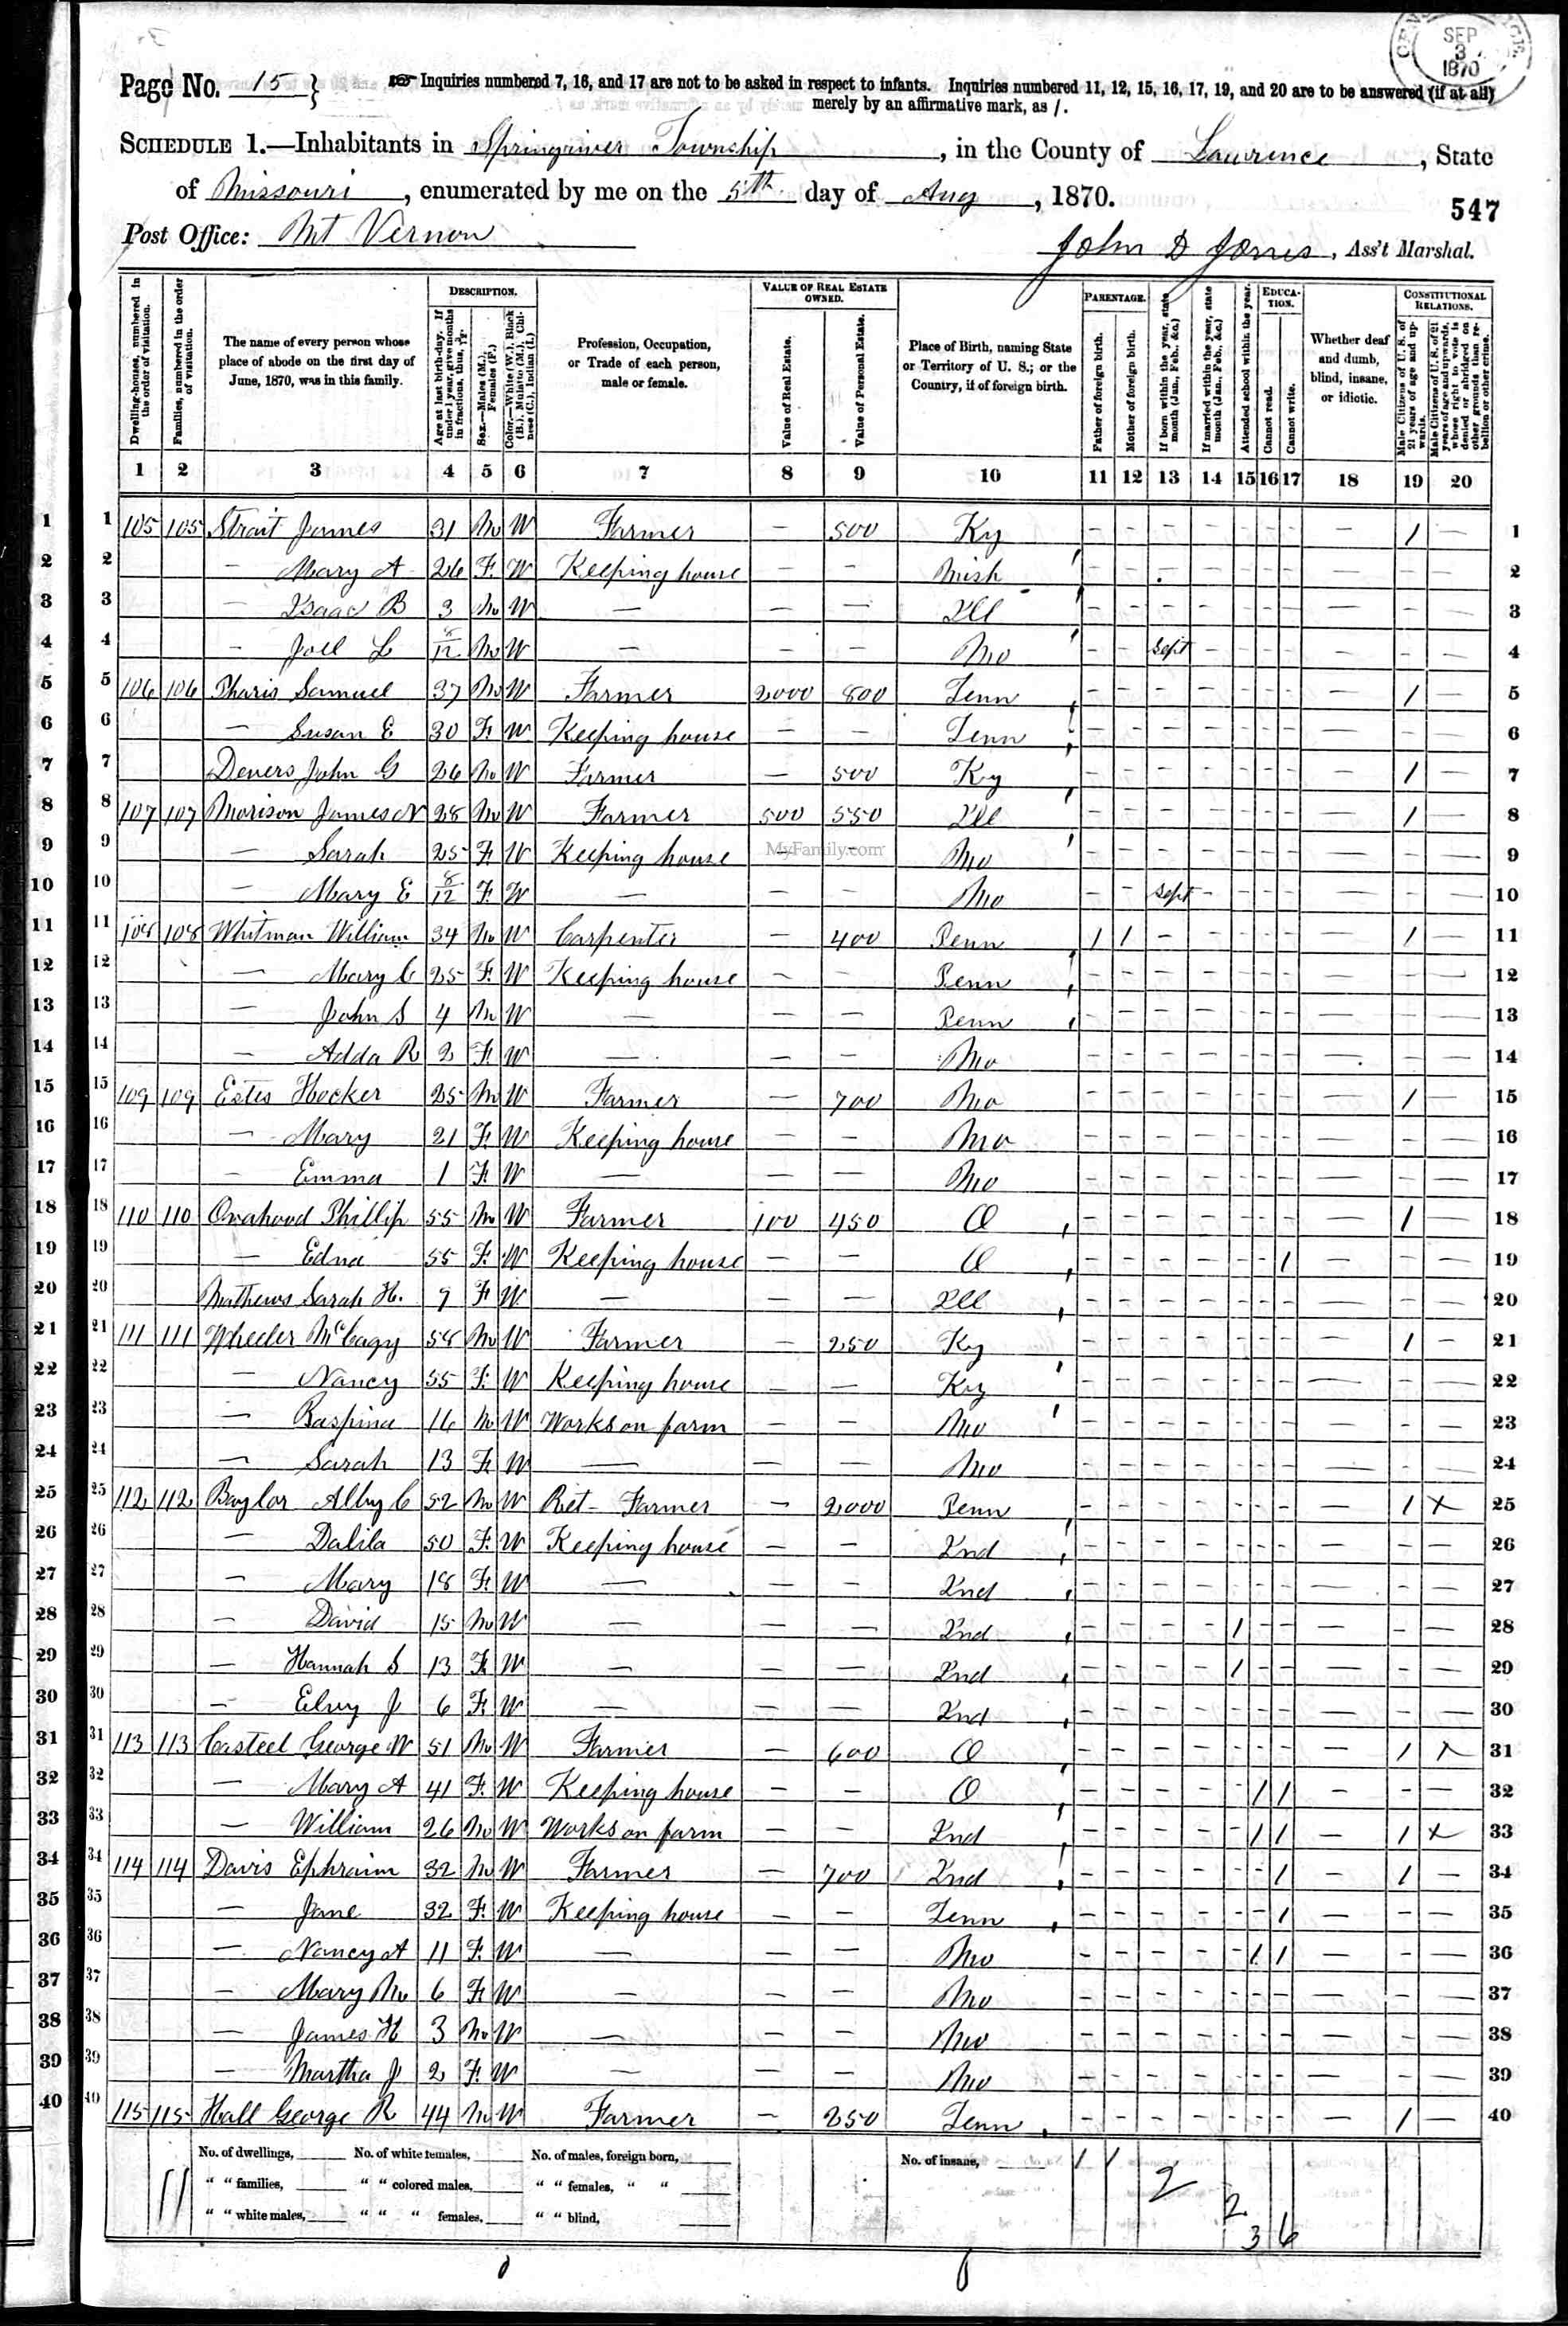 CENSUS OFFICE SEP 3 1870
Page No. 15 } Inquiries numbered 7, 16, and 17 are not to be asked in respect to infants. Inquiries numbered 11, 12, 15, 16, 17, 19, and 20 are to be answered (if at all)
merely by an affirmative mark, as /.
SCHEDULE 1.—Inhabitants in Springriver Township, in the County of Lawrence, State
of Missouri, enumerated by me on the 5th day of Aug, 1870.
547
Post Office: Mt Vernon
John D Jones, Ass't Marshal.
Dwelling-houses, numbered in the order of visitation.
Families, numbered in the order of visitation.
The name of every person whose place of abode on the first day of June, 1870, was in this family.
DESCRIPTION.
Age at last birth-day. If under 1 year, give months in fractions, thus, 3/12
Sex.—Males (M.), Females (F.)
Color.—White (W.), Black (B.), Mulatto (M.), Chinese (C.), Indian (I.)
Profession, Occupation, or Trade of each person, male or female.
VALUE OF REAL ESTATE OWNED.
Value of Real Estate.
Value of Personal Estate.
Place of Birth, naming State or Territory of U. S.; or the Country, if of foreign birth.
PARENTAGE.
Father of foreign birth.
Mother of foreign birth.
If born within the year, state month (Jan., Feb., &c.)
If married within the year, state month (Jan., Feb., &c.)
Attended school within the year.
EDUCATION.
Cannot read.
Cannot write.
Whether deaf and dumb, blind, insane, or idiotic.
CONSTITUTIONAL RELATIONS.
Male Citizens of U. S. of 21 years of age and upwards.
Male Citizens of U. S. of 21 years of age and upwards, whose right to vote is denied or abridged on other grounds than rebellion or other crime.
1 2 3 4 5 6 7 8 9 10 11 12 13 14 15 16 17 18 19 20
1 1 105 105 Strait James 31 M W Farmer — 500 Ky 1 — 1
2 2 — Mary A 26 F W Keeping house — — Mich 2
3 3 — Isaac B 3 M W — — — Ill 3
4 4 — Joel L M W — — — Mo Sept 4
5 5 106 106 Pharis Samuel 37 M W Farmer 2000 800 Tenn 1 — 5
6 6 — Susan E 30 F W Keeping house — — Tenn 6
7 7 Devers John G 26 M W Farmer — 500 Ky 1 — 7
8 8 107 107 Morison James N 28 M W Farmer 500 550 Ill 1 — 8
9 9 — Sarah 25 F W Keeping house — — Mo 9
MyFamily.com
10 10 — Mary E 8/12 F W — — — Mo Sept 10
11 11 108 108 Whitman William 34 M W Carpenter — 400 Penn 1 1 1 — 11
12 12 — Mary C 25 F W Keeping house — — Penn 12
13 13 — John S 4 M W — — — Penn 13
14 14 — Adda R 2 F W — — — Mo 14
15 15 109 109 Estes Hocker 25 M W Farmer — 700 Mo 1 — 15
16 16 — Mary 21 F W Keeping house — — Mo 16
17 17 — Emma 1 F W — — — Mo 17
18 18 110 110 Phillip 55 M W Farmer 100 450 O 1 — 18
19 19 — Edna 55 F W Keeping house — — O 1 19
20 20 Mathews Sarah H. 9 F W — — — Ill 20
21 21 111 111 Wheeler 58 M W Farmer — 250 Ky 1 — 21
22 22 — Nancy 55 F W Keeping house — — Ky 22
23 23 — 16 M W Works on farm — — Mo 23
24 24 — Sarah 13 F W — — — Mo 24
25 25 112 112 Baylor C 52 M W Ret- Farmer — 2000 Penn 1 X 25
26 26 — Dalila 50 F W Keeping house — — Ind 26
27 27 — Mary 18 F W — — — Ind 27
28 28 — David 15 M W — — — Ind 1 28
29 29 — Hannah S 13 F W — — — Ind 1 29
30 30 — J 6 F W — — — Ind 30
31 31 113 113 Casteel George W 51 M W Farmer — 600 O 1 X 31
32 32 — Mary A 41 F W Keeping house — — O 1 1 32
33 33 — William 26 M W Works on farm — — Ind 1 1 — 1 X 33
34 34 114 114 Davis Ephraim 32 M W Farmer — 700 Ind 1 — 1 — 34
35 35 — Jane 32 F W Keeping house — — Tenn 1 35
36 36 — Nancy A 11 F W — — — Mo 1 1 36
37 37 — Mary M 6 F W — — — Mo 37
38 38 — James H 3 M W — — — Mo 38
39 39 — Martha J 2 F W — — — Mo 39
40 40 115 115 Hall George R 44 M W Farmer — 250 Tenn 1 — 40
No. of dwellings, No. of white females, No. of males, foreign born, No. of insane, 1 1
" " families, " " colored males, " " females, " " 2
11
" " white males, " " " females, " " blind, 2
3 6